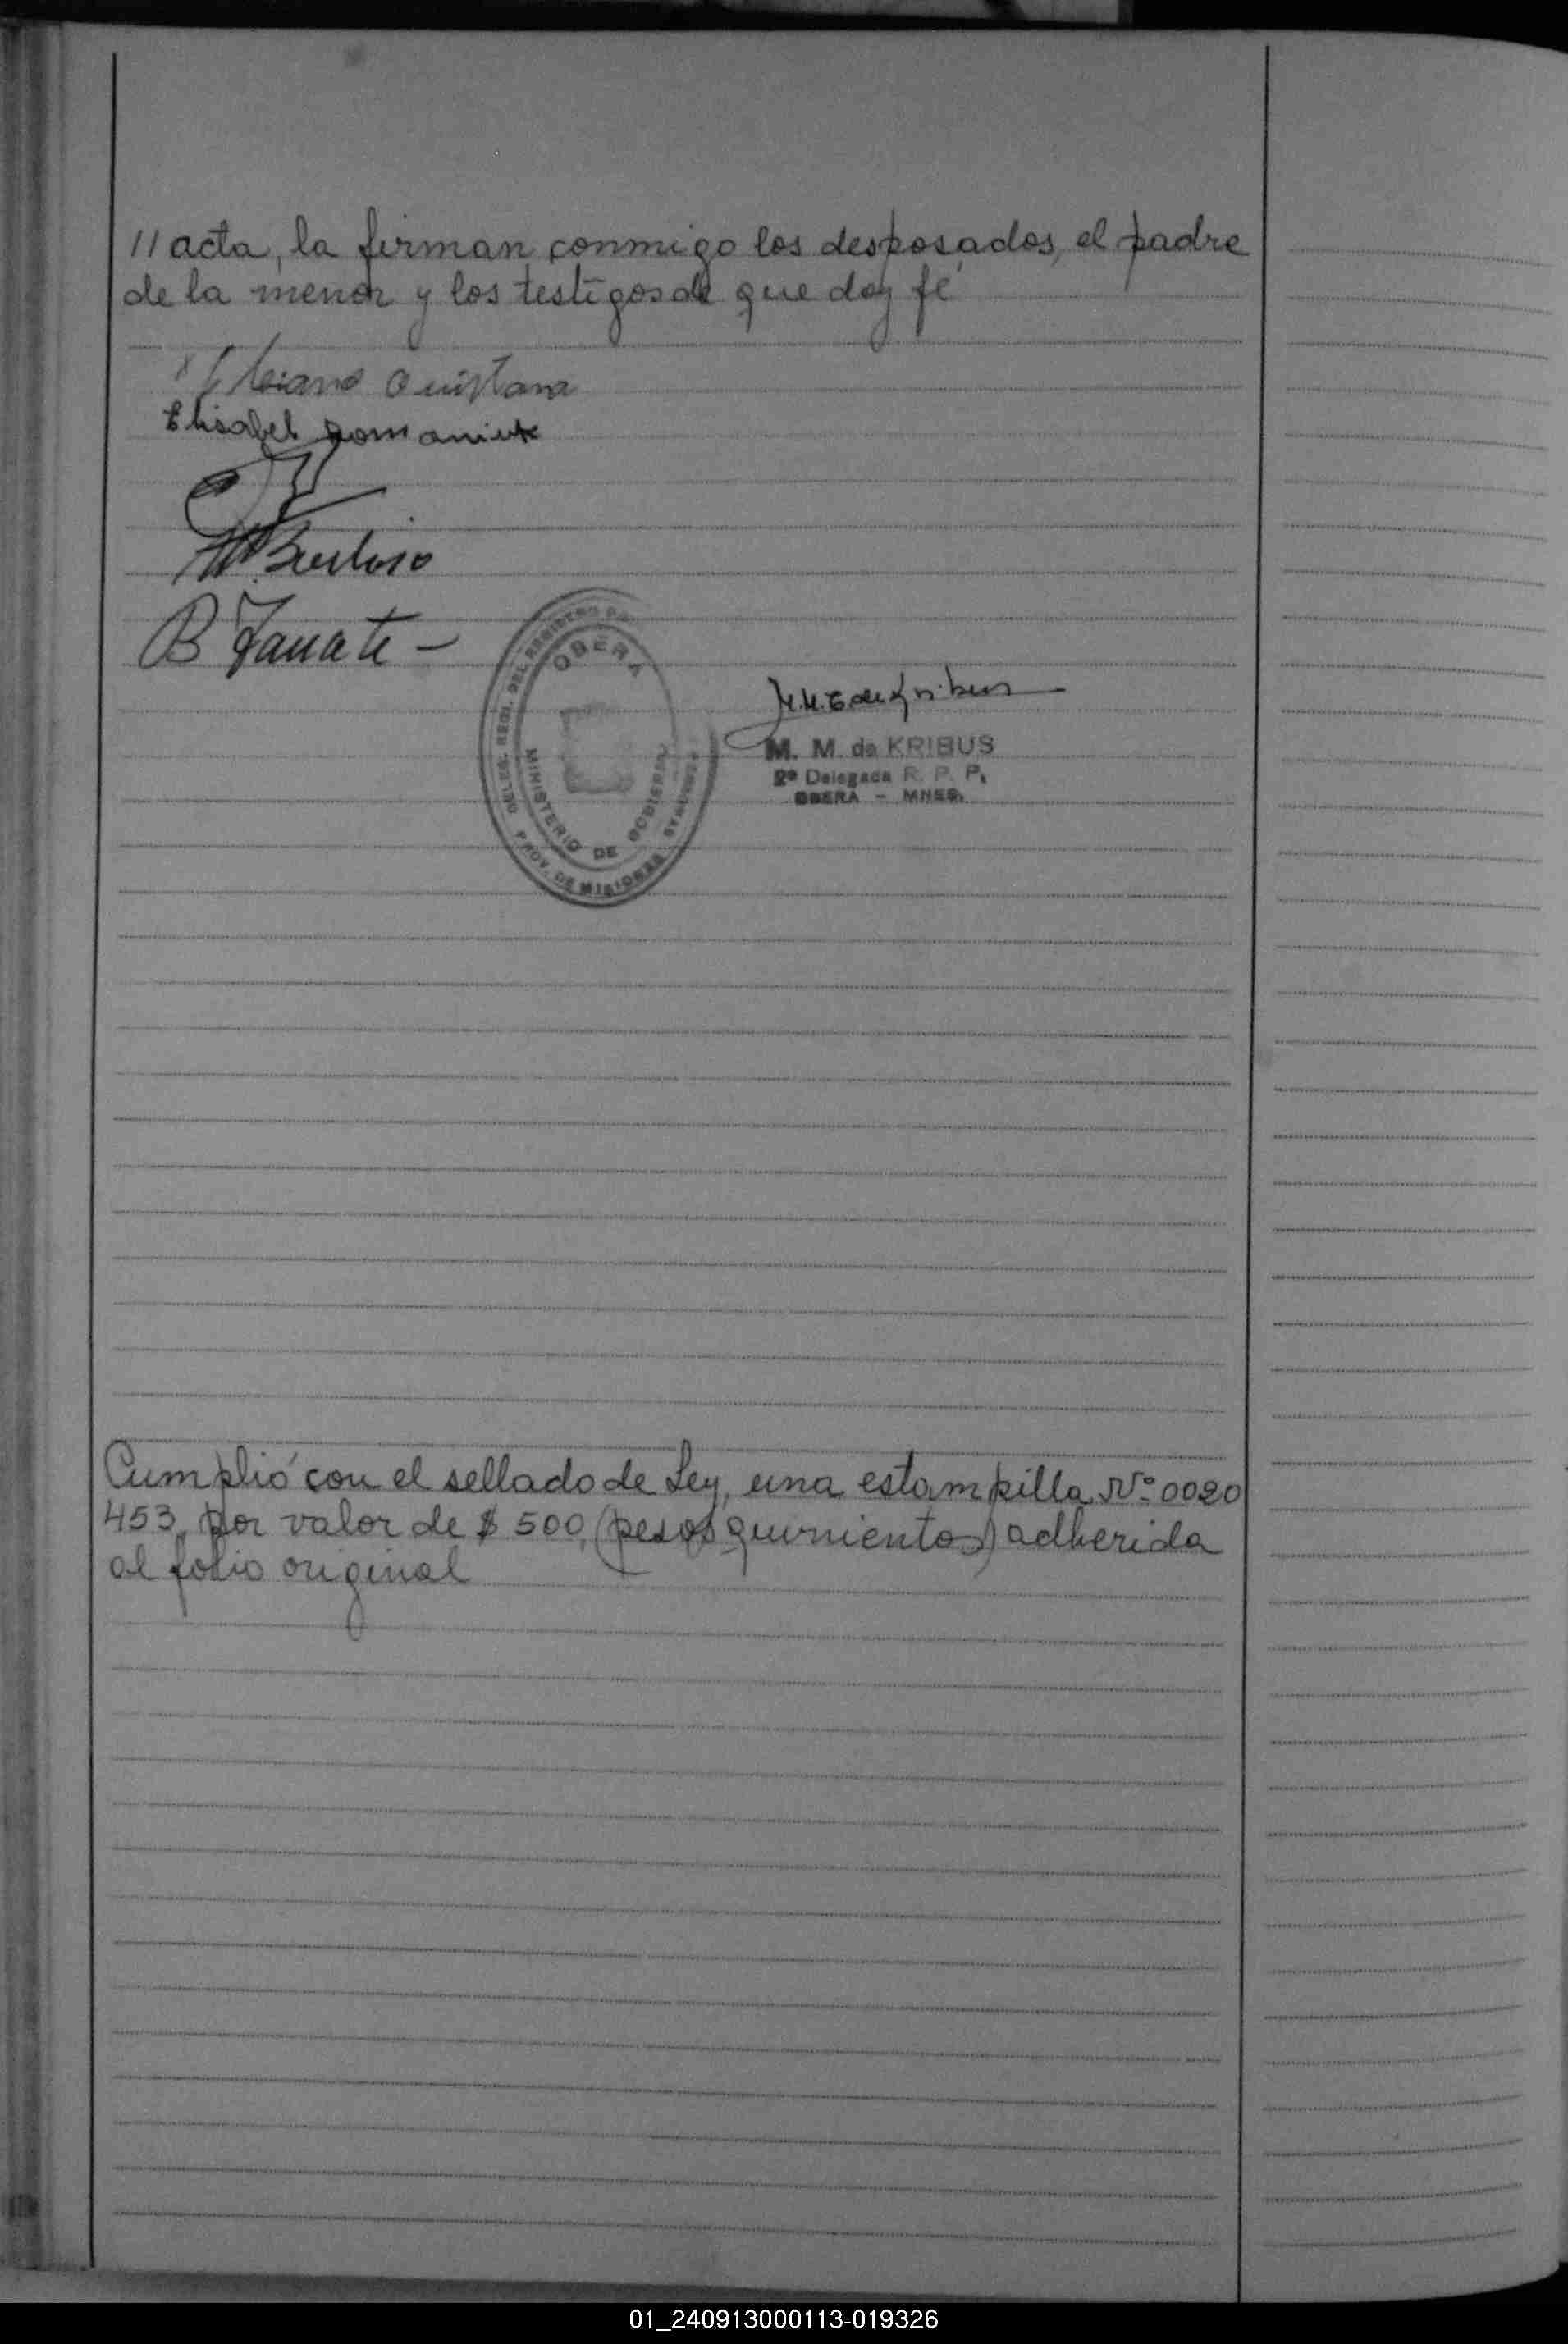 // acta, la firman conmigo los desposados, el padre
de la menor y los testigos de que doy fé
Quintana
Elisabet Romaniuk
B Zarrate -
DELEG. REGI. DEL REGISTRO
OBERA
MINISTERIO DE GOBIERNO
PROV. DE MISIONES
M. M. de KRIBUS
2ª Delegada R. P. P.
OBERA - MNES.
Cumplió con el sellado de Ley, una estampilla Nº 0020
453, por valor de $ 500, (pesos quinientos) adherida
al folio original
01_240913000113-019326